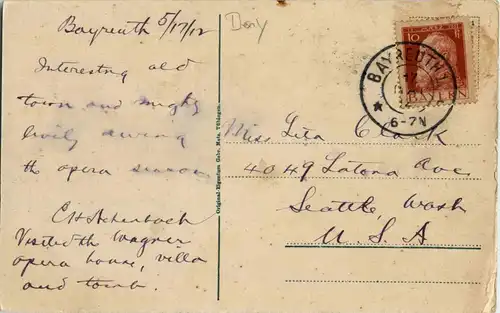 Bayreuth 5/17/12
Derly
Interesting old
town and mighty
lively during
the opera season
E H Achenbach
Visited th Wagner
opera house, villa
and tomb.
Original-Eigentum Gebr. Metz, Tübingen
Miss Lita Clark
4049 Latona Ave
Seattle, Wash
U.S.A
10
BAYREUTH 1
6-7N